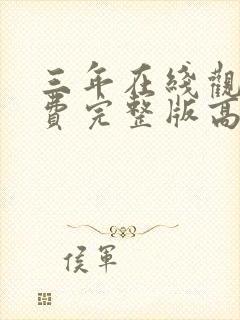 三年在綫觀
費完整版高
侯軍